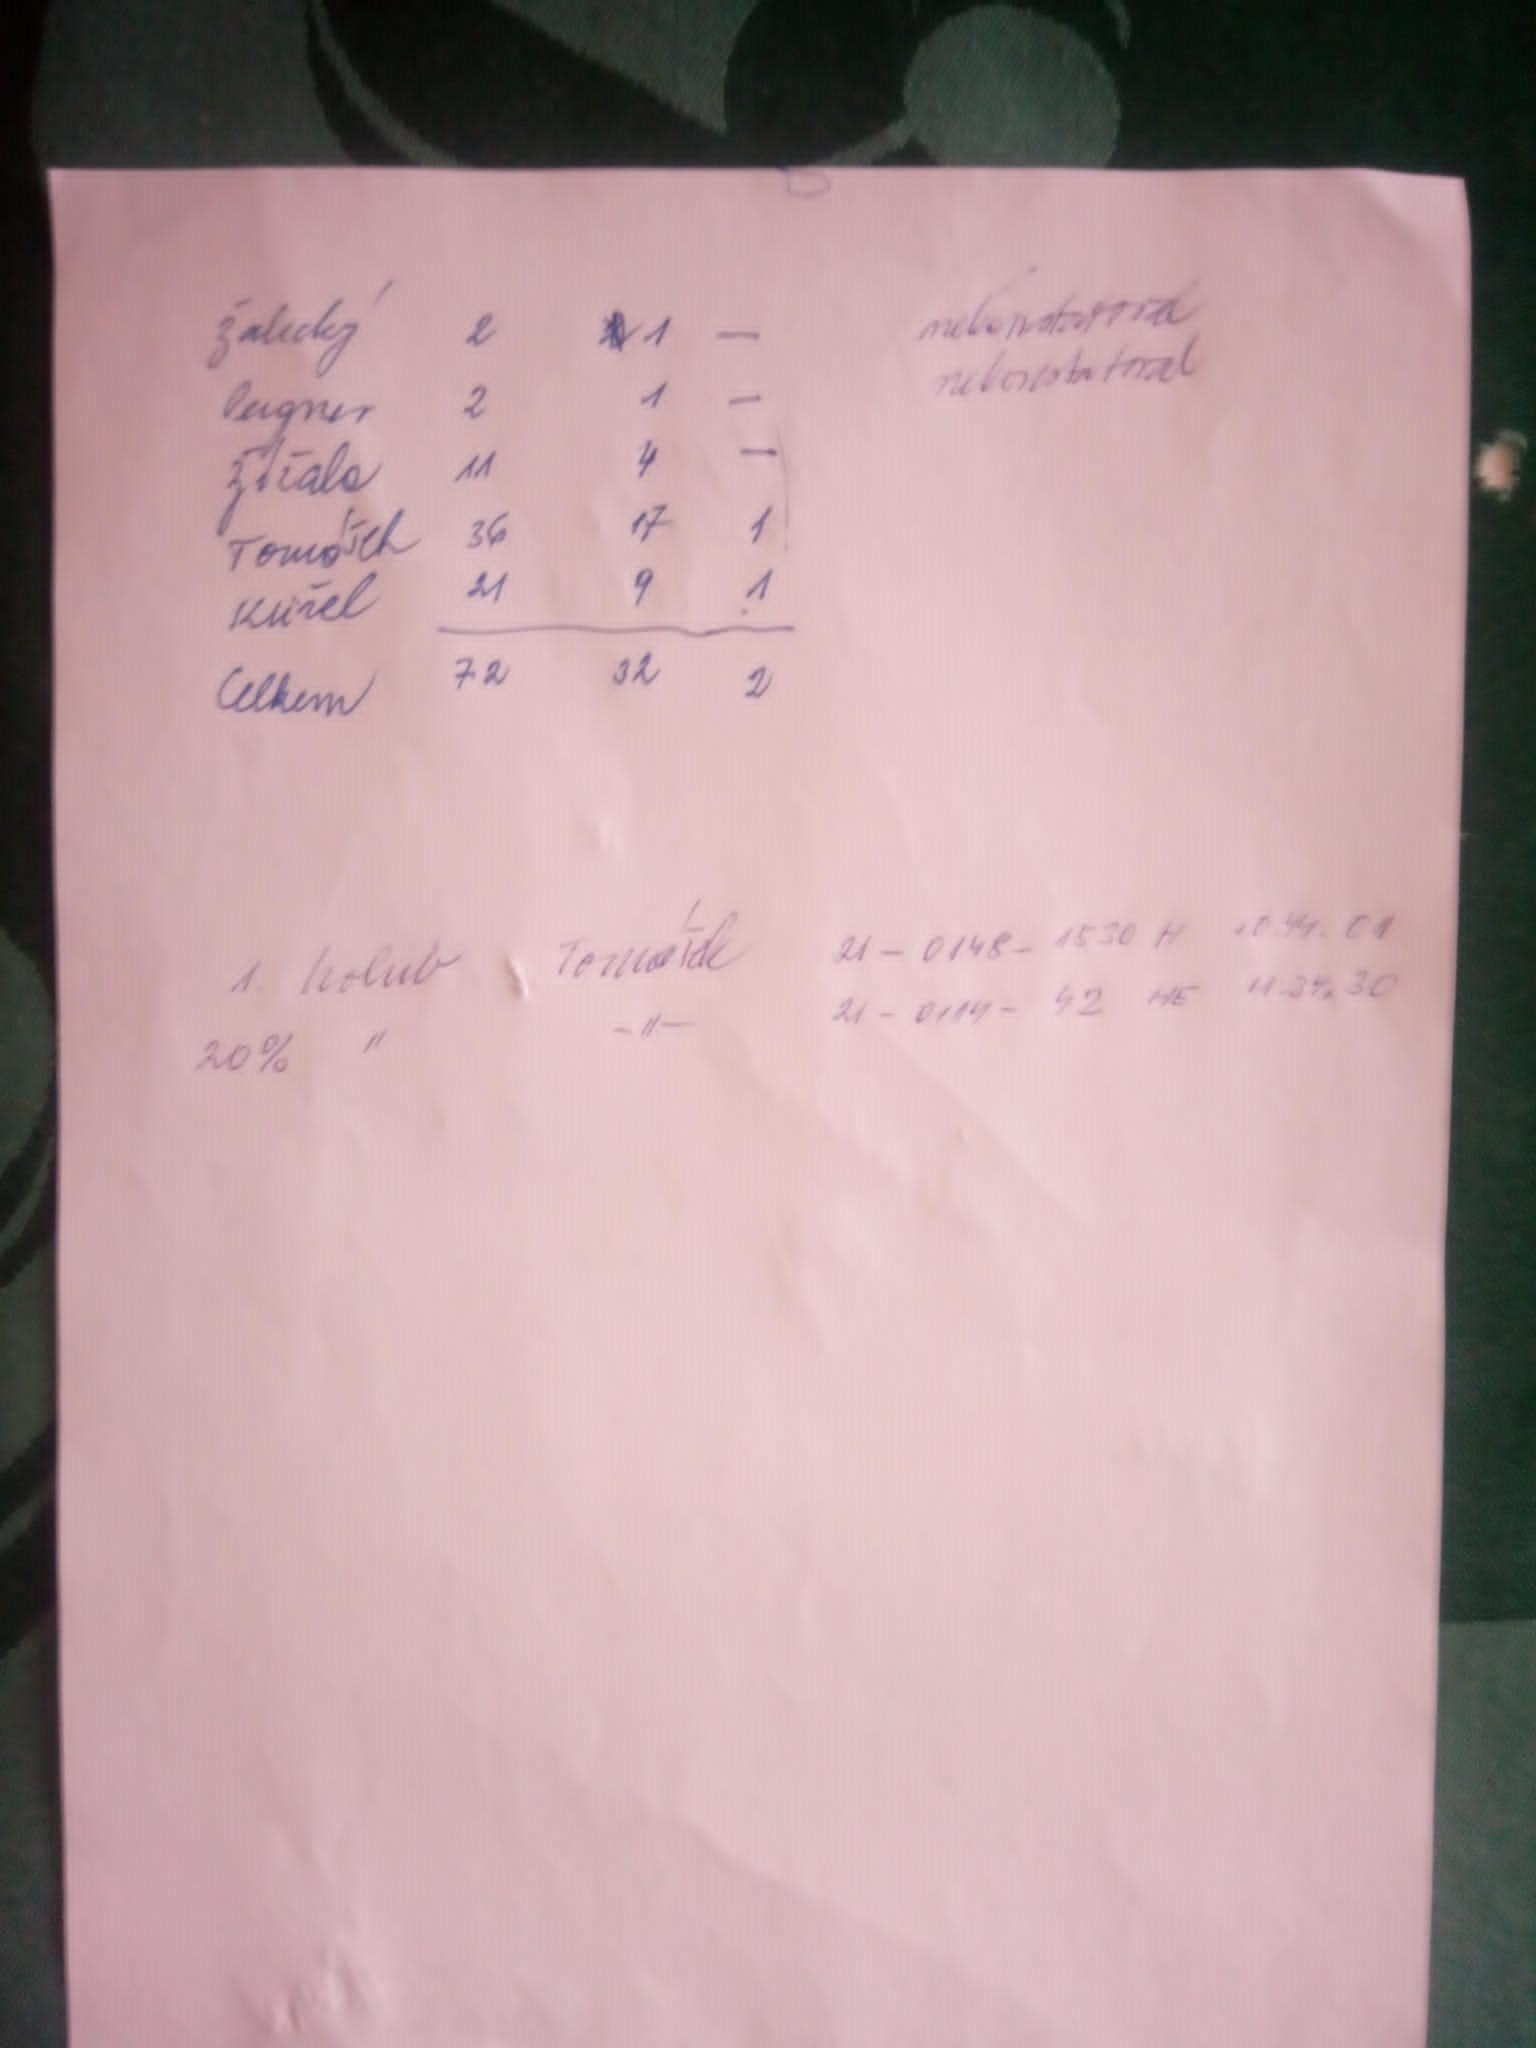 Žaludký 2 1 — nekonstatoval
Peugner 2 1 — nekonstatoval
Žížala 11 4 —
Tomášek 36 17 1
Kužel 21 9 1
Celkem 72 32 2
1. holub Tomášek 21 - 0148 - 1530 H 10.44.01
20% " -"- 21 - 0114 - 42 HE 11.34.30